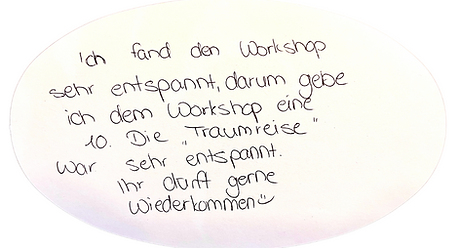 Ich fand den Workshop
sehr entspannt, darum gebe
ich dem Workshop eine
10. Die „Traumreise"
war sehr entspannt.
Ihr dürft gerne
wiederkommen☺